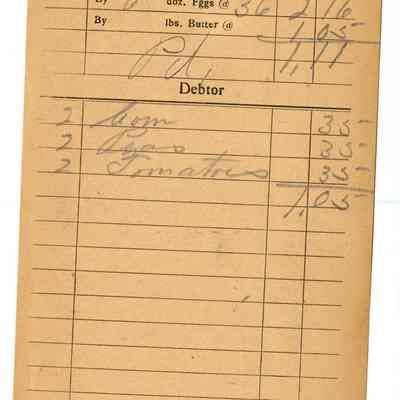 By doz. Eggs @ 36 2 16
By lbs. Butter @ 1,05
Pd. 1,11
Debtor
2 Corn 35
2 Peas 35
2 Tomatoes 35
1,05